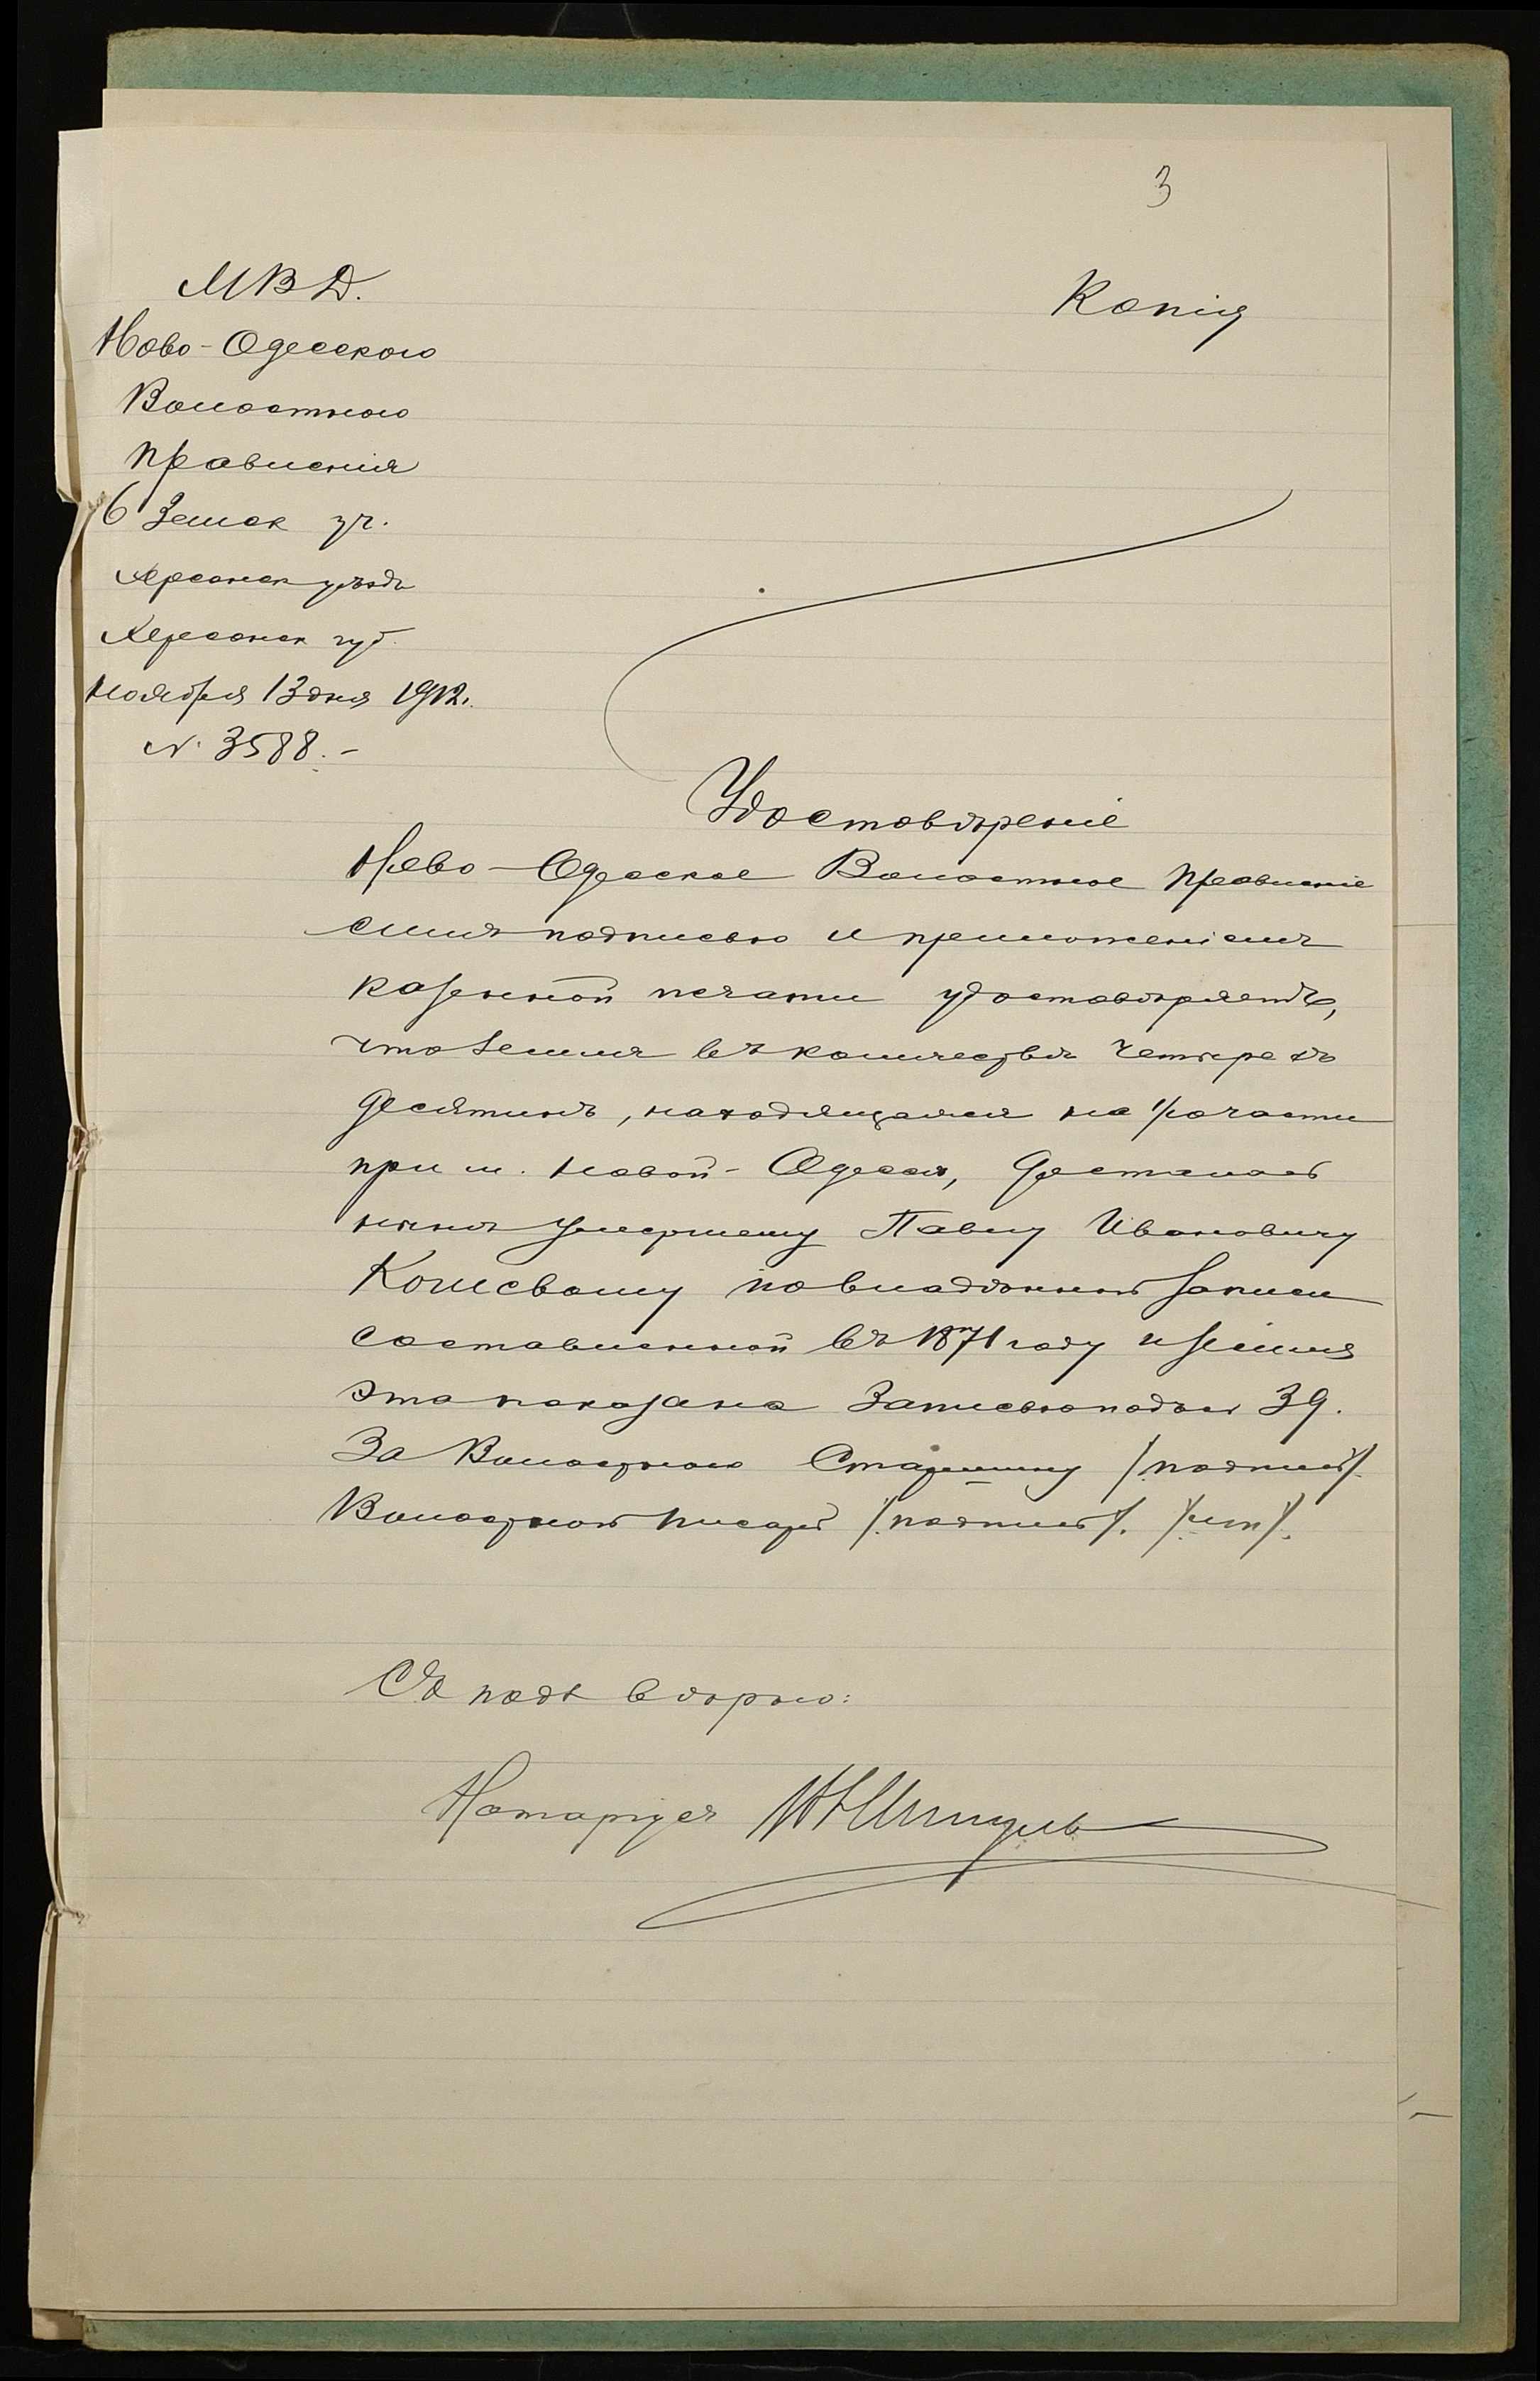 3
МВД.
Ново-Одесскаго
Волостного
Правленія
6 Земск уч.
Херсонск уѣздъ
Херсонск губ.
Ноября 13 дня 1912.
№ 3588.-
Копія
Удостовѣреніе
Ново-Одесское Волостное Правленіе
симъ подписью и приложеніемъ
казенной печати удостовѣряетъ,
что земля въ количествѣ четырехъ
десятинъ, находящаяся на
при м. Новой-Одессѣ, досталась
нынѣ умершему Павлу Ивановичу
Кошевому по владѣнной записи
составленной въ 1871 году и земля
эта показана записью под № 39.
За Волостного Старшину /подпись/.
Волостной Писарь /подпись/. /мп/.
Съ подл вѣрно:
Нотаріусъ